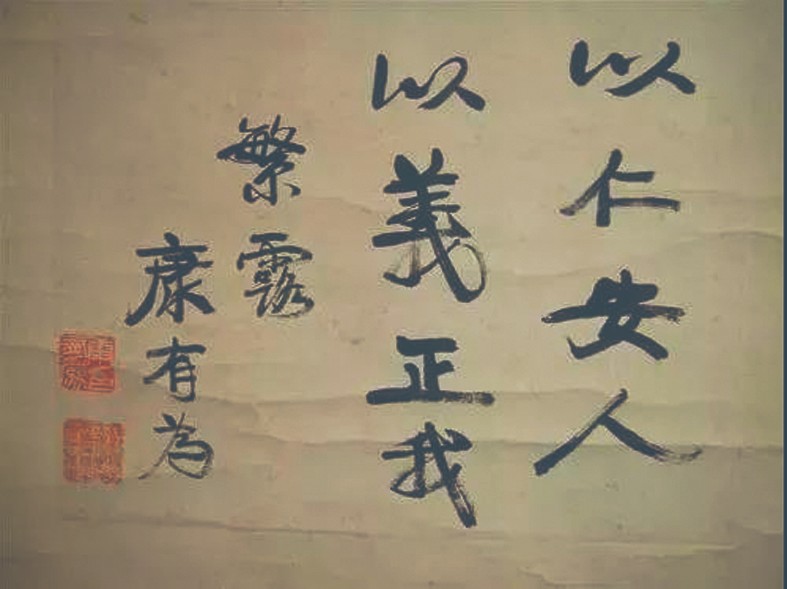 以仁安人
以義正我
繁露
康有為